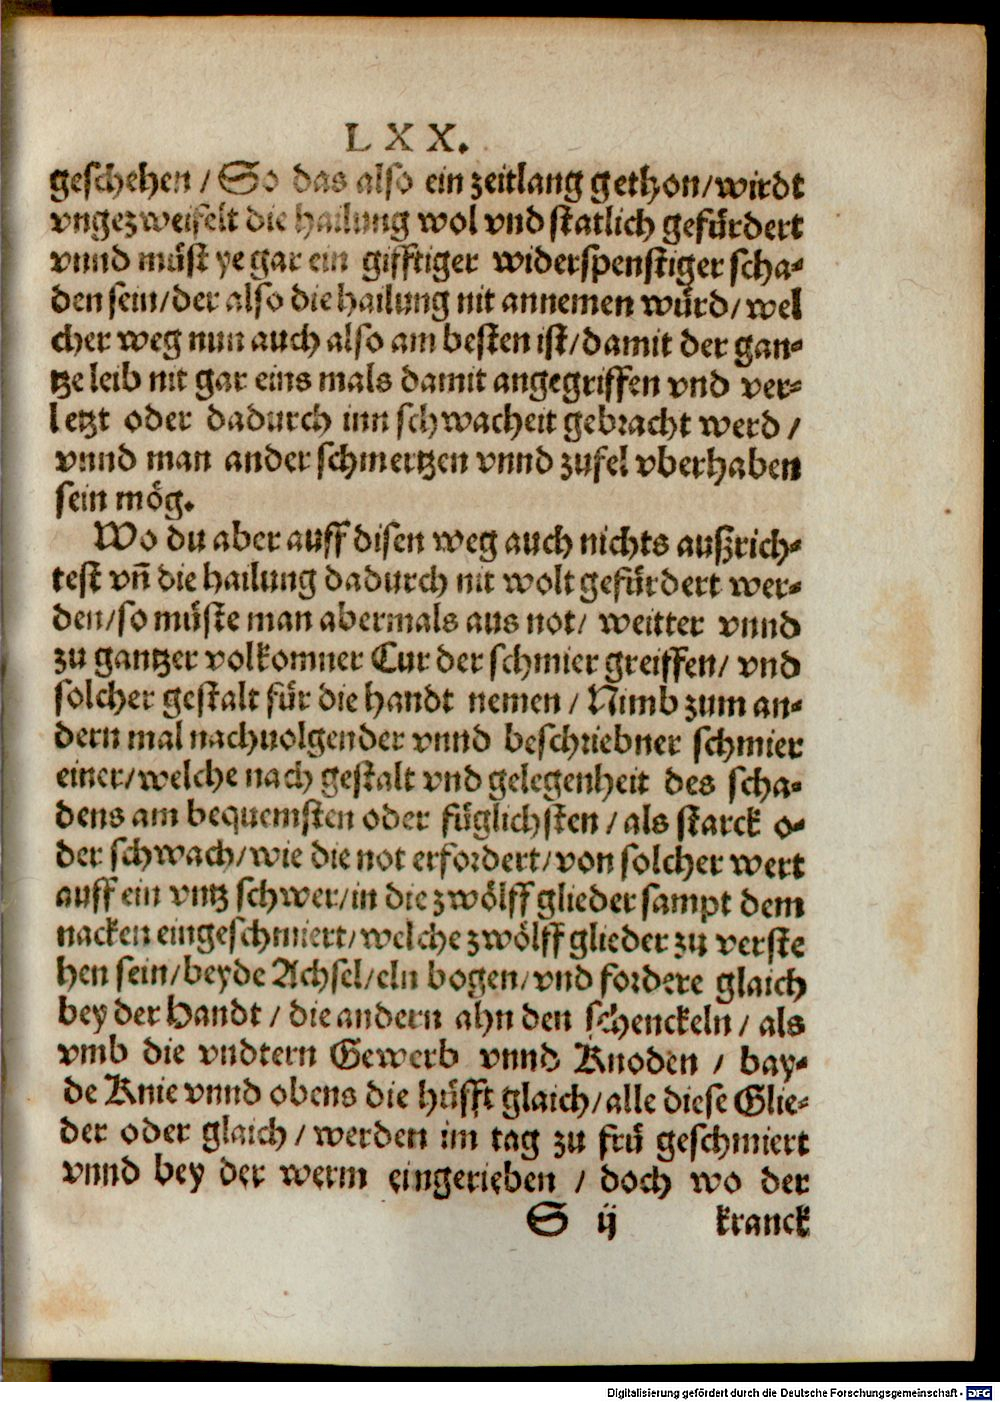 LXX.
geschehen / So das also ein zeitlang gethon/wirdt
vngezweifelt die hailung wol vnd statlich gefürdert
vnnd müst ye gar ein gifftiger widerspenstiger scha-
den sein/der also die hailung nit annemen würd/wel
cher weg nun auch also am besten ist/damit der gan-
tze leib nit gar eins mals damit angegriffen vnd ver-
letzt oder dadurch inn schwacheit gebracht werd /
vnnd man ander schmertzen vnnd zufel vberhaben
sein mög.
Wo du aber auff disen weg auch nichts außrich-
test vñ die hailung dadurch nit wolt gefürdert wer-
den/so müste man abermals aus not/ weitter vnnd
zu gantzer volkomner Cur der schmier greiffen/ vnd
solcher gestalt für die handt nemen / Nimb zum an-
dern mal nachuolgender vnnd beschriebner schmier
einer/welche nach gestalt vnd gelegenheit des scha-
dens am bequemsten oder füglichsten / als starck o-
der schwach/wie die not erfordert/von solcher wert
auff ein vntz schwer/in die zwölff glieder sampt dem
nacken eingeschmiert/welche zwölff glieder zu verste
hen sein/beyde Achsel/eln bogen/vnd fordere glaich
bey der Handt / die andern ahn den schenckeln / als
vmb die vndtern Gewerb vnnd Knoden / bay-
de Knie vnnd obens die hüfft glaich/alle diese Glie-
der oder glaich / werden im tag zu frü geschmiert
vnnd bey der werm eingerieben / doch wo der
S ij kranck
Digitalisierung gefördert durch die Deutsche Forschungsgemeinschaft - DFG